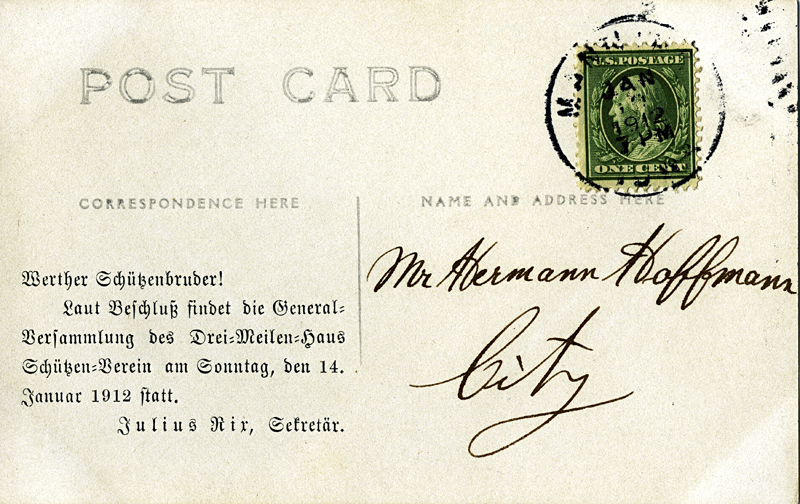 POST CARD
U.S. POSTAGE
JAN
1912
7 PM
ONE CENT
CORRESPONDENCE HERE
NAME AND ADDRESS HERE
Werther Schützenbruder!
Laut Beschluß findet die General=
Versammlung des Drei=Meilen=Haus
Schützen=Verein am Sonntag, den 14.
Januar 1912 statt.
Julius Rix, Sekretär.
Mr Hermann Hoffmann
City